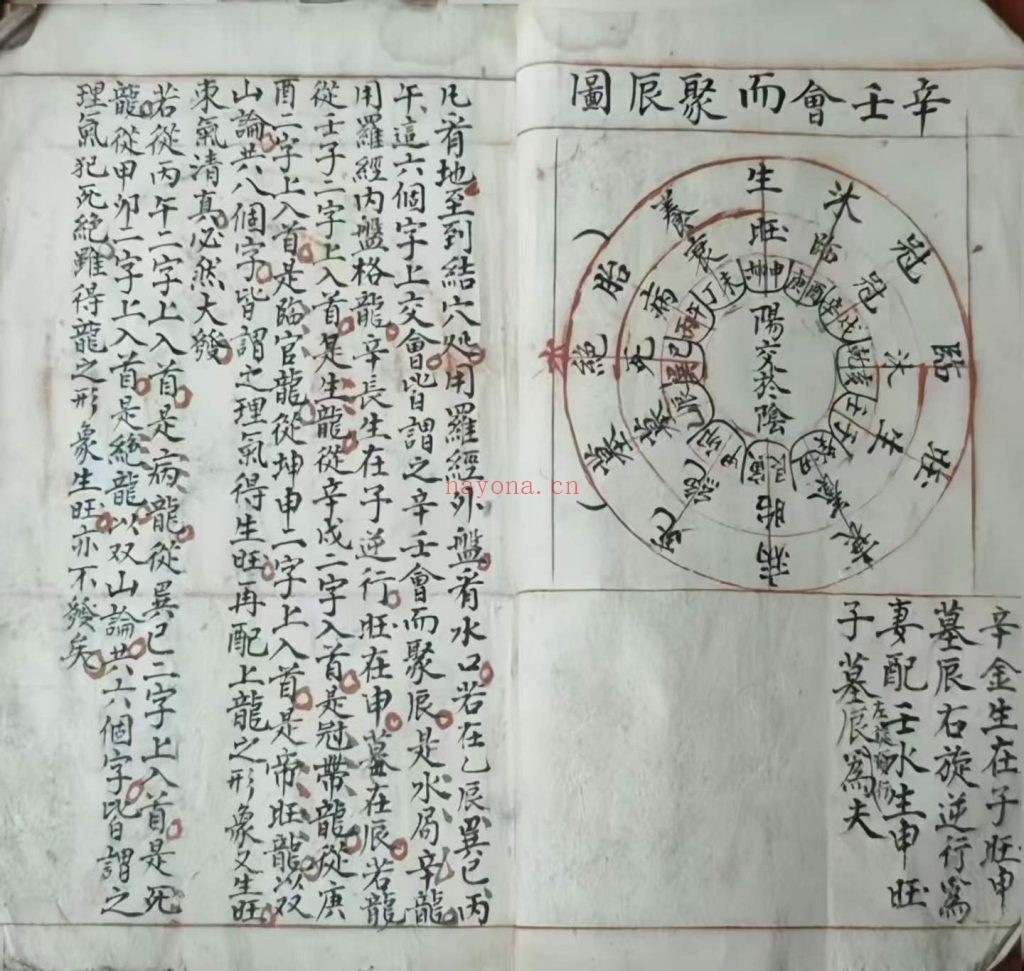 辛壬會而聚辰圖
生
沐
冠
臨
旺
衰
病
死
墓
絕
胎
養
旺
冠
沐
生
養
胎
絕
墓
死
病
衰
坤申
庚酉
辛戌
乾亥
壬子
癸丑
艮寅
甲卯
乙辰
巽巳
丙午
丁未
陽交於陰
水
辛金生在子旺申
墓辰右旋逆行爲
妻配壬水生申旺
子墓辰左旋順行爲夫
凡看地至到結穴処用羅經外盤看水口若在乙辰巽巳丙
午這六個字上交會皆謂之辛壬會而聚辰是水局辛龍
用羅經內盤格龍辛長生在子逆行旺在申墓在辰若龍
從壬子二字上入首是生龍從辛戌二字入首是冠帶龍從庚
酉二字上入首是臨官龍從坤申二字上入首是帝旺龍以双
山論共八個字皆謂之理氣得生旺再配上龍之形象又生旺
來氣清真必然大發
若從丙午二字上入首是病龍從巽巳二字上入首是死
龍從甲卯二字上入首是絕龍以双山論共六個字皆謂之
理氣犯死絕雖得龍之形象生旺亦不發矣
hayona.cn